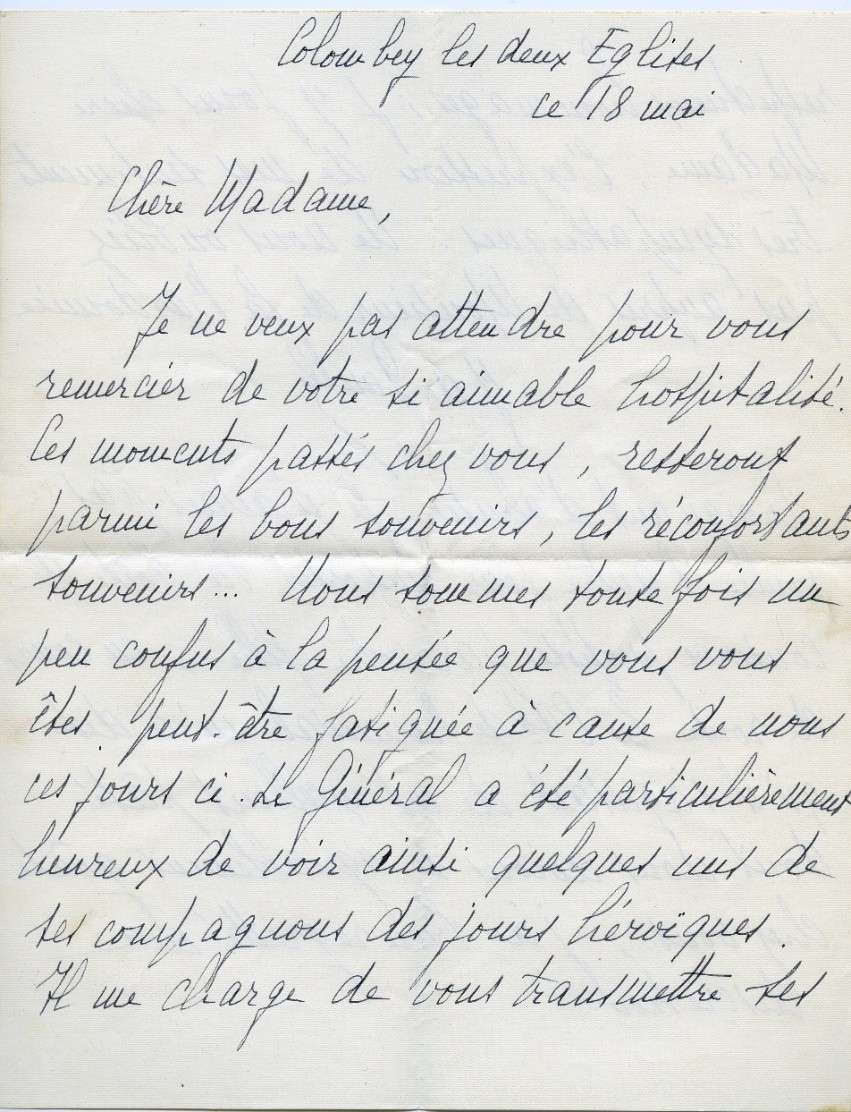 Colombey les deux Eglises
ce 18 mai
Chère Madame,
Je ne veux pas attendre pour vous
remercier de votre si aimable hospitalité.
Ces moments passés chez vous, resteront
parmi les bons souvenirs, les réconfortants
souvenirs... Nous sommes toute fois un
peu confus à la pensée que vous vous
êtes peut-être fatiguée à cause de nous
ces jours ci. Le Général a été particulièrement
heureux de voir ainsi quelques uns de
ses compagnons des jours héroïques.
Il me charge de vous transmettre ses